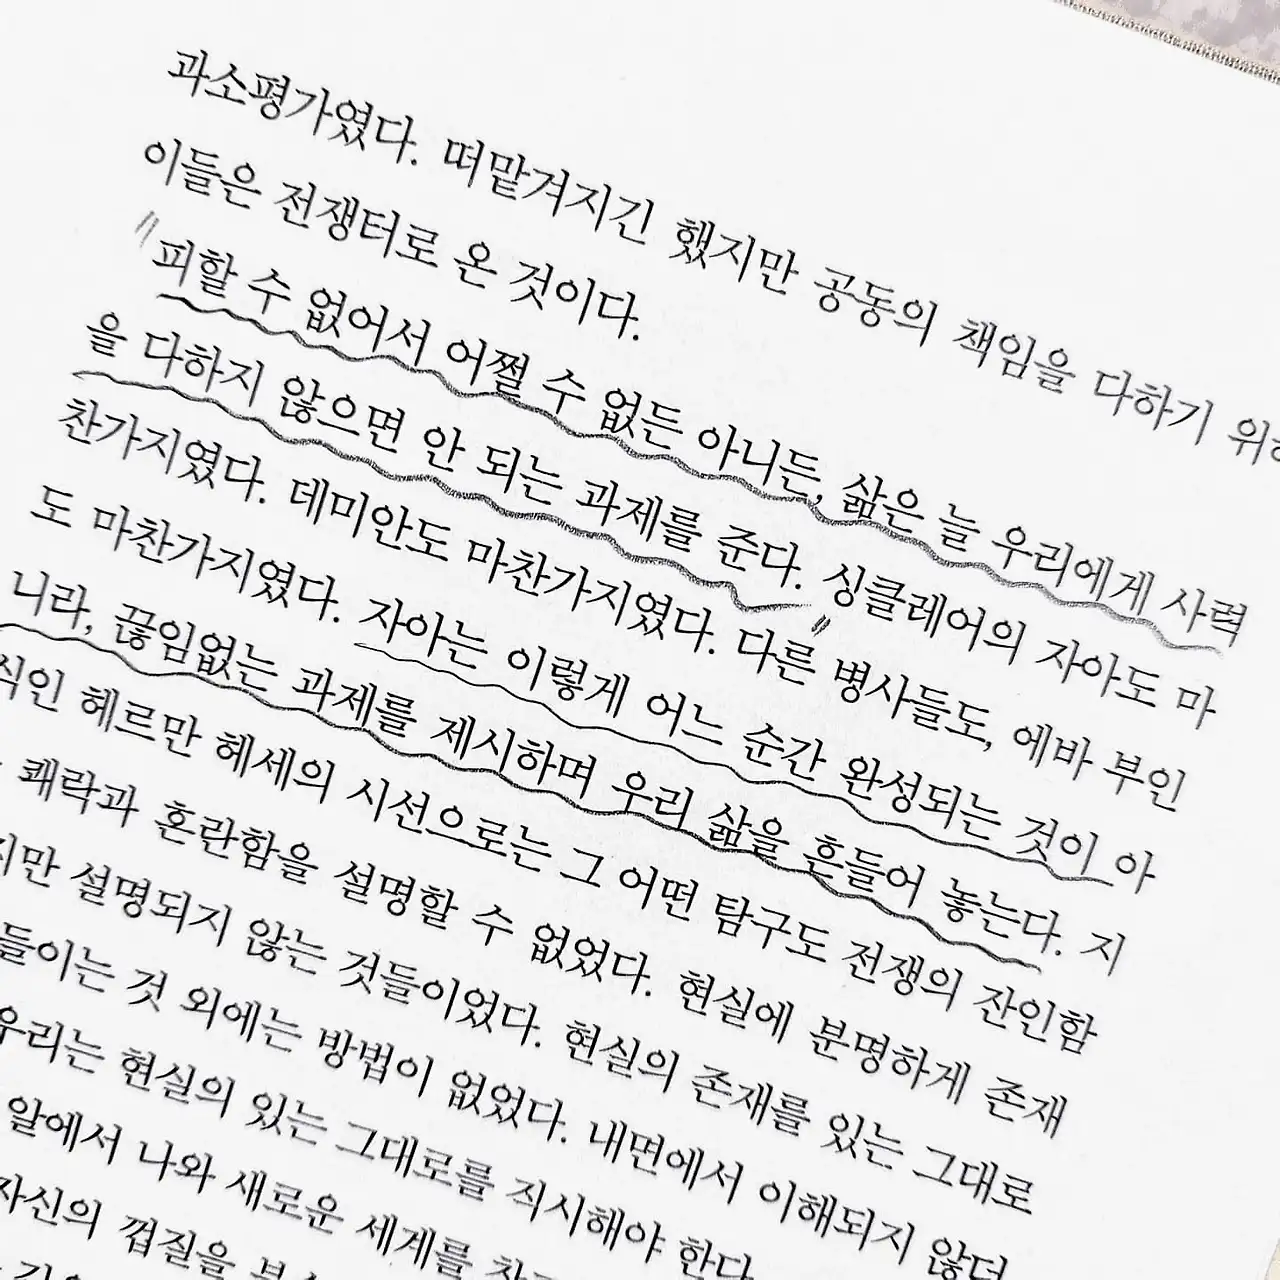 과소평가였다. 떠맡겨지긴 했지만 공동의 책임을 다하기 위해
이들은 전쟁터로 온 것이다.
피할 수 없어서 어쩔 수 없든 아니든, 삶은 늘 우리에게 사력
을 다하지 않으면 안 되는 과제를 준다. 싱클레어의 자아도 마
찬가지였다. 데미안도 마찬가지였다. 다른 병사들도, 에바 부인
도 마찬가지였다. 자아는 이렇게 어느 순간 완성되는 것이 아
니라, 끊임없는 과제를 제시하며 우리 삶을 흔들어 놓는다. 지
식인 헤르만 헤세의 시선으로는 그 어떤 탐구도 전쟁의 잔인함
쾌락과 혼란함을 설명할 수 없었다. 현실에 분명하게 존재
지만 설명되지 않는 것들이었다. 현실의 존재를 있는 그대로
들이는 것 외에는 방법이 없었다. 내면에서 이해되지 않던
우리는 현실의 있는 그대로를 직시해야 한다
알에서 나와 새로운 세계를
자신의 껍질을